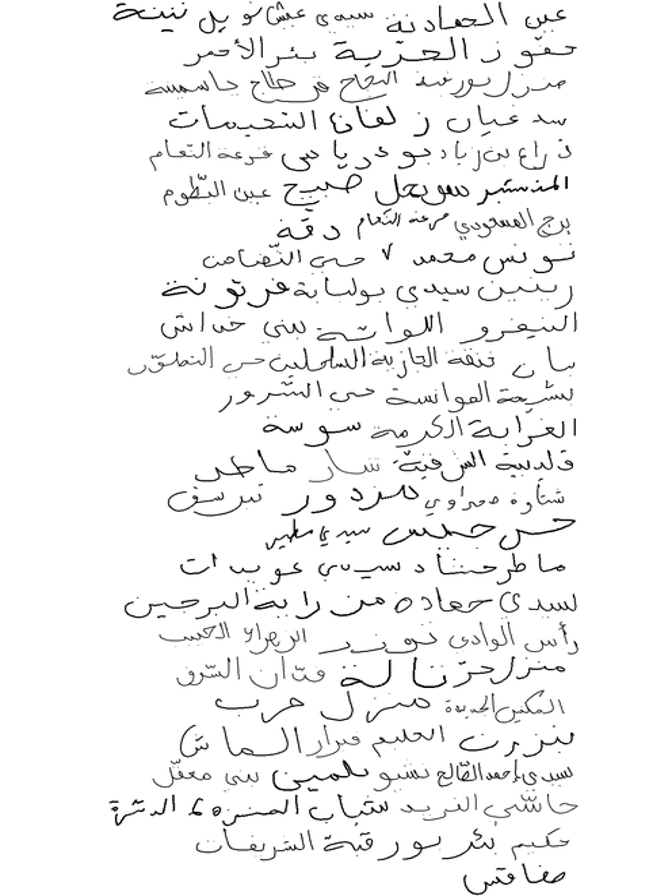 عين الحمادنة سيدي عيش نويل نينة
حفوز الحرية بئر الأحمر
منزل بورقيبة النجاح فج حاج جاسمينة
سد عيان زلفان النعيمات
ذراع بن زياد بو درياس فرعة النعام
المنستير سويحل صبيح عين البطوم
برج المسعودي مرعة النعام دقة
تونس محمد ٧ حي التضامن
رنين سيدي بولبابة فرتونة
النيفرو اللواتة بني خداش
سان فنقة الجازية الساحلين حي التطور
بشيحة الموانسة حي السرور
الغرابة الكرمة سوسة
قليبية الشرفية سار ماطر
شتاوة صحراوي المزدور تبرسق
حي خميس سيدي مطير
ماطر حشاد سيدي عويدات
لسيدي حمادة من رابة البرجين
رأس الوادي توزر الزهراء الحبيب
منزل حر نالة فدان الشرق
المكنين الجديدة منزل حرب
بنزرت الحليم قمرار الماش
سيدي أحمد الصالح نشيو بلمين بني معقل
حاشي الفريد شباب المنزه ٤ الدشرة
حكيم بئر بورقبة الشريفات
صفاقس